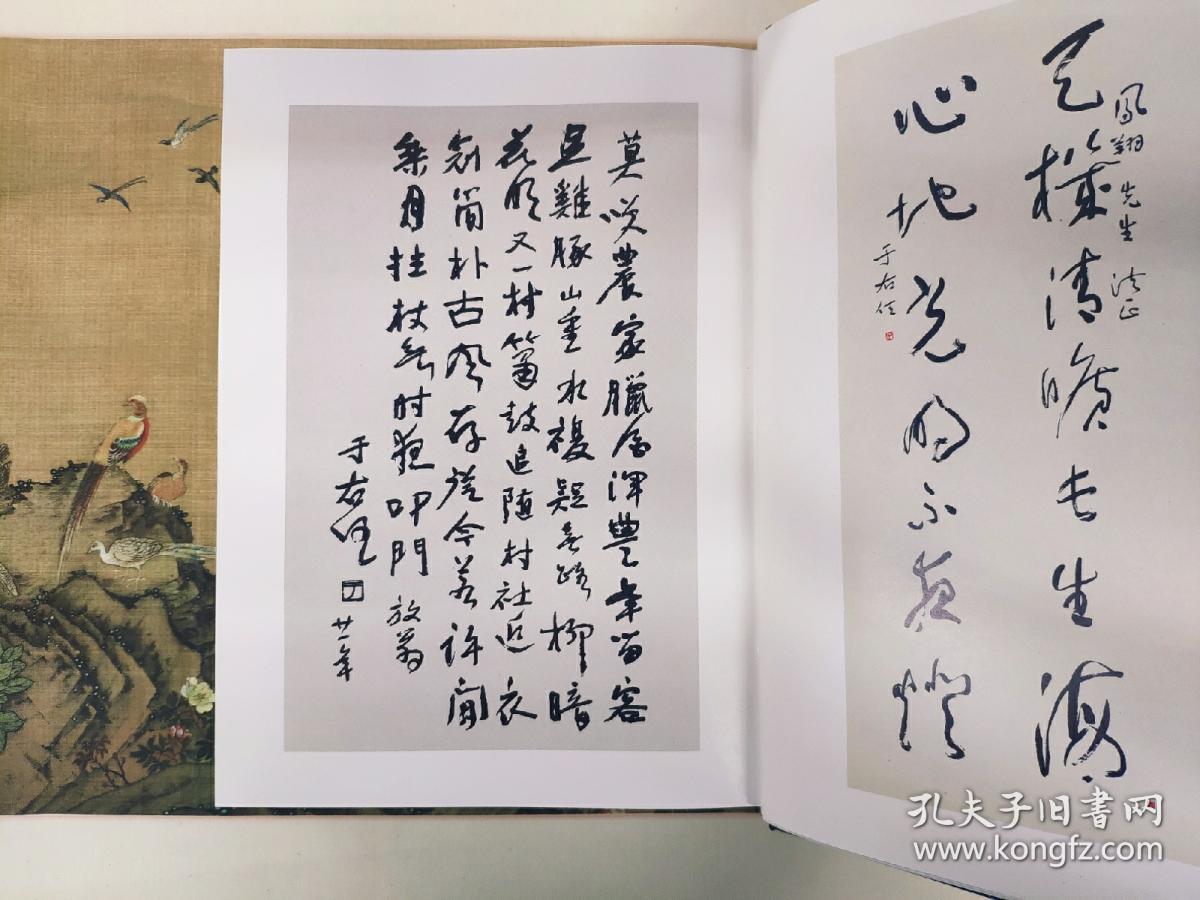 鳳翔先生 法正
天機清曠長生海
心地光明不夜燈
于右任
莫咲農家臘酒渾豐年留客
足雞豚山重水複疑無路柳暗
花明又一村簫鼓追隨村社近衣
冠簡朴古風存從今若許閒
乘月拄杖無时夜叩門 放翁
于右任 廿一年
孔夫子旧书网
www.kongfz.com